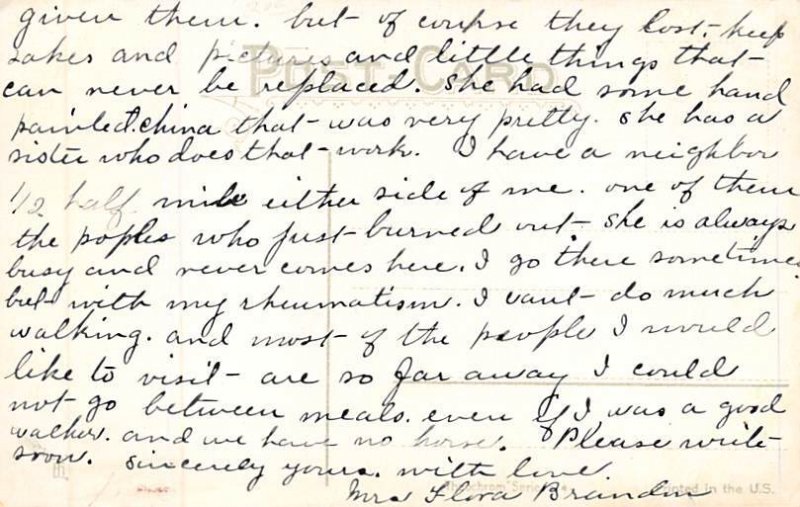 given them. but of course they lost keep
sakes and pictures and little things that
POST-CARD
can never be replaced. She had some hand
painted china that was very pretty. she has a
sister who does that work. I have a neighbor
1/2 half mile either side of me. one of them
the peoples who just burned out. she is always
busy and never comes here. I go there sometimes
but with my rheumatism. I cant do much
walking. and most of the people I would
like to visit are so far away I could
not go between meals. even if I was a good
walker. and we have no horse. Please write
soon. Sincerely yours. with love.
Mrs Flora Brandon
Printed in the U.S.